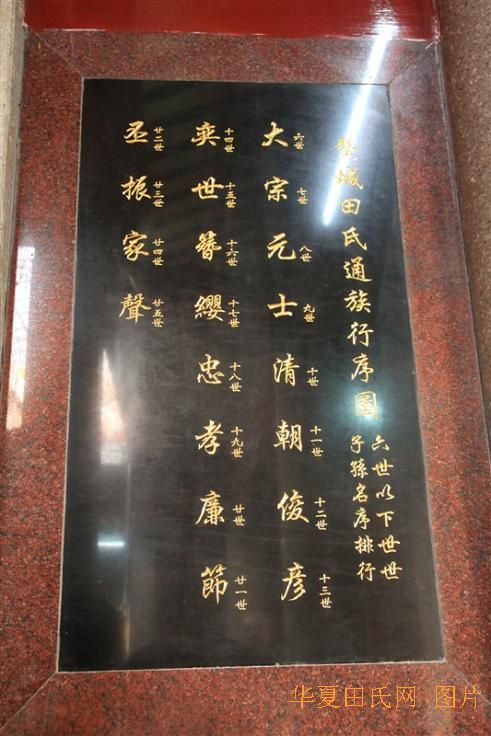 城田氏通族行序圖
六世以下世世
子孫名序排行
六世 七世 八世 九世 十世 十一世 十二世 十三世
大宗元士清朝俊彦
十四世 十五世 十六世 十七世 十八世 十九世 廿世 廿一世
奕世簪纓忠孝廉節
廿二世 廿三世 廿四世 廿五世
丕振家聲
华夏田氏网 图片